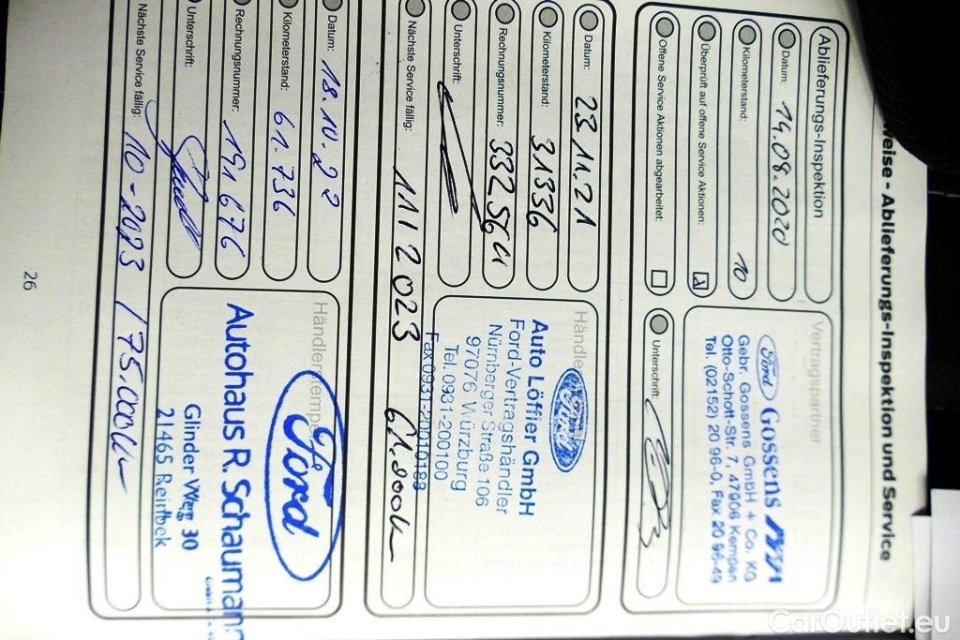 weise - Ablieferungs-Inspektion und Service
Ablieferungs-Inspektion
Datum: 14.08.2020
Kilometerstand: 10
Überprüft auf offene Service Aktionen:
Offene Service Aktionen abgearbeitet:
Vertragspartner
Ford Gossens
Gebr. Gossens GmbH + Co. KG
Otto-Schott-Str. 7, 47906 Kempen
Tel. (02152) 20 96-0, Fax 20 96-49
Unterschrift:
Datum: 23.11.21
Kilometerstand: 31336
Rechnungsnummer:
Unterschrift:
Nächste Service fällig: 11/2023 61.800k
Auto Löffler GmbH
Ford-Vertragshändler
Nürnberger Straße 106
97076 Würzburg
Tel. 0931-200100
Fax 0931-20010188
Datum: 18.10.22
Kilometerstand: 61.736
Rechnungsnummer: 191676
Unterschrift:
Nächste Service fällig: 10-2023 / 75.000k
Händlerstempel
Ford
Autohaus R. Schaumann
Glinder Weg 30
21465 Reinbek
26
CarOutlet.eu